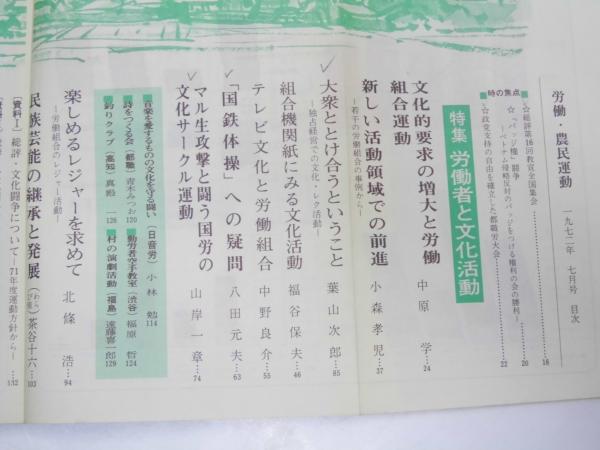 労働・農民運動 一九七二年 七月号 目次
時の焦点
☆総評第16回教宣全国集会………18
☆「バッジ権」闘争
―ベトナム侵略反対のバッジをつける権利の会の勝利―………20
☆政党支持の自由を確立した都職労大会………22
特集 労働者と文化活動
文化的要求の増大と労働
組合運動 中原 学…24
新しい活動領域での前進 小森孝児…37
―若干の労働組合の事例から―
大衆ととけ合うということ 葉山次郎…85
―独占経営での文化・レク活動―
組合機関紙にみる文化活動 福谷保夫…46
テレビ文化と労働組合 中野良介…55
「国鉄体操」への疑問 八田元夫…63
マル生攻撃と闘う国労の
文化サークル運動 山岸一章…74
音楽を愛するものの文化を守る闘い(日音労) 小林 勉…114
詩をつくる会(都職) 青木みつお…120
勤労者空手教室(渋谷) 福原 哲…124
釣りクラブ(高知) 真殿 一…126
村の演劇活動(福島) 遠藤喜一郎…129
楽しめるレジャーを求めて 北條 浩…94
―労働組合のレジャー活動―
民族芸能の継承と発展(わらび座) 茶谷十六…103
〔資料Ⅰ〕総評・文化闘争について―71年度運動方針から―…132